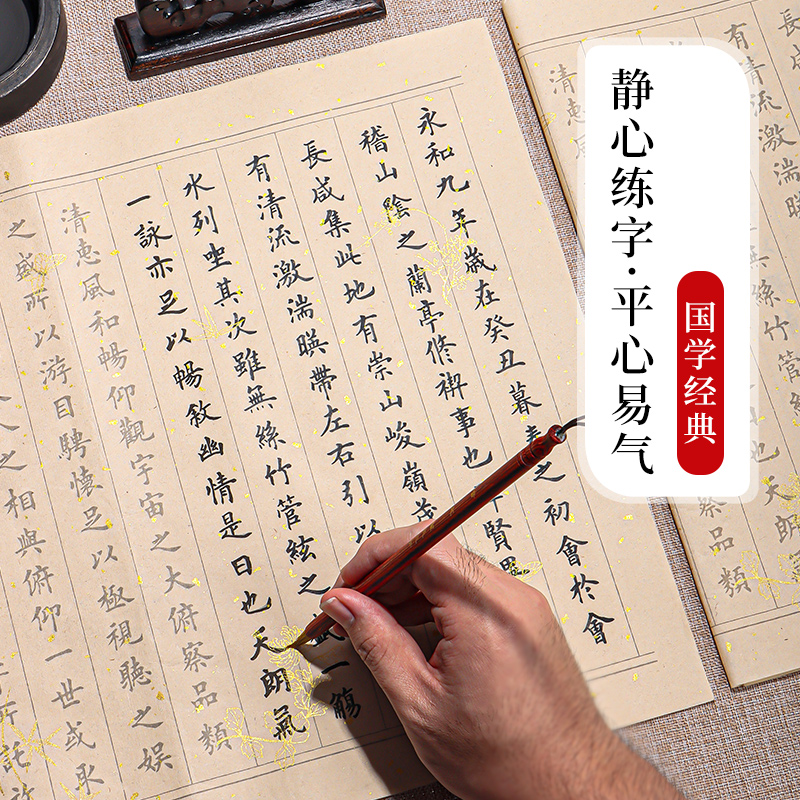 静心练字·平心易气
国学经典
長
有清流激湍暎
無絲竹管
也天朗
清惠風
察品類
永和九年歲在癸丑暮春之初會於會
稽山陰之蘭亭修禊事也
賢畢
長咸集此地有崇山峻嶺茂
有清流激湍暎帶左右引以
水列坐其次雖無絲竹管絃之盛一觴
一詠亦足以暢敘幽情是日也天朗氣
清惠風和暢仰觀宇宙之大俯察品類
之盛所以游目騁懷足以極視聽之娛
人之相與俯仰一世或取